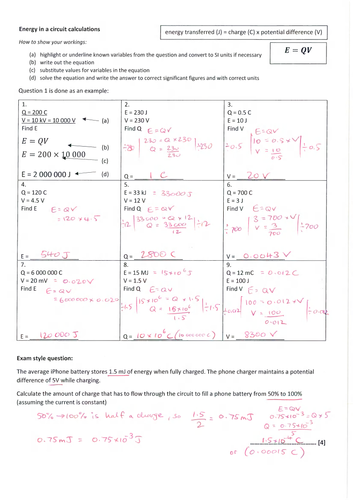 Energy in a circuit calculations
energy transferred (J) = charge (C) x potential difference (V)
How to show your workings:
E = QV
(a) highlight or underline known variables from the question and convert to SI units if necessary
(b) write out the equation
(c) substitute values for variables in the equation
(d) solve the equation and write the answer to correct significant figures and with correct units
Question 1 is done as an example:
1.
Q = 200 C
V = 10 kV = 10 000 V (a)
Find E
E = QV (b)
E = 200 × 10 000 (c)
E = 2 000 000 J (d)
2.
E = 230 J
V = 230 V
Find Q E = QV
÷230 | 230 = Q × 230 | ÷230
Q = 230/230
Q = 1 C
3.
Q = 0.5 C
E = 10 J
Find V E = QV
÷0.5 | 10 = 0.5 × V | ÷0.5
V = 10/0.5
V = 20 V
4.
Q = 120 C
V = 4.5 V
Find E E = QV
= 120 × 4.5
E = 540 J
5.
E = 33 kJ = 33000J
V = 12 V
Find Q E = QV
÷12 | 33000 = Q × 12 | ÷12
Q = 33000/12
Q = 2800 C
6.
Q = 700 C
E = 3 J
Find V E = QV
÷700 | 3 = 700 × V | ÷700
V = 3/700
V = 0.0043 V
7.
Q = 6 000 000 C
V = 20 mV = 0.020V
Find E E = QV
= 6000000 × 0.02
E = 120 000 J
8.
E = 15 MJ = 15×10⁶ J
V = 1.5 V
Find Q E = QV
÷1.5 | 15×10⁶ = Q × 1.5 | ÷1.5
Q = 15×10⁶/1.5
Q = 10 × 10⁶ C (10 000 000 C)
9.
Q = 12 mC = 0.012C
E = 100 J
Find V E = QV
÷0.012 | 100 = 0.012 × V | ÷0.012
V = 100/0.012
V = 8300 V
Exam style question:
The average iPhone battery stores 1.5 mJ of energy when fully charged. The phone charger maintains a potential
difference of 5V while charging.
Calculate the amount of charge that has to flow through the circuit to fill a phone battery from 50% to 100%
(assuming the current is constant)
50% → 100% is half a charge, so 1.5/2 = 0.75 mJ
E = QV
0.75×10⁻³ = Q × 5
0.75 mJ = 0.75 × 10⁻³ J
Q = 0.75×10⁻³/5
1.5×10⁻⁴ C [4]
or (0.00015 C)